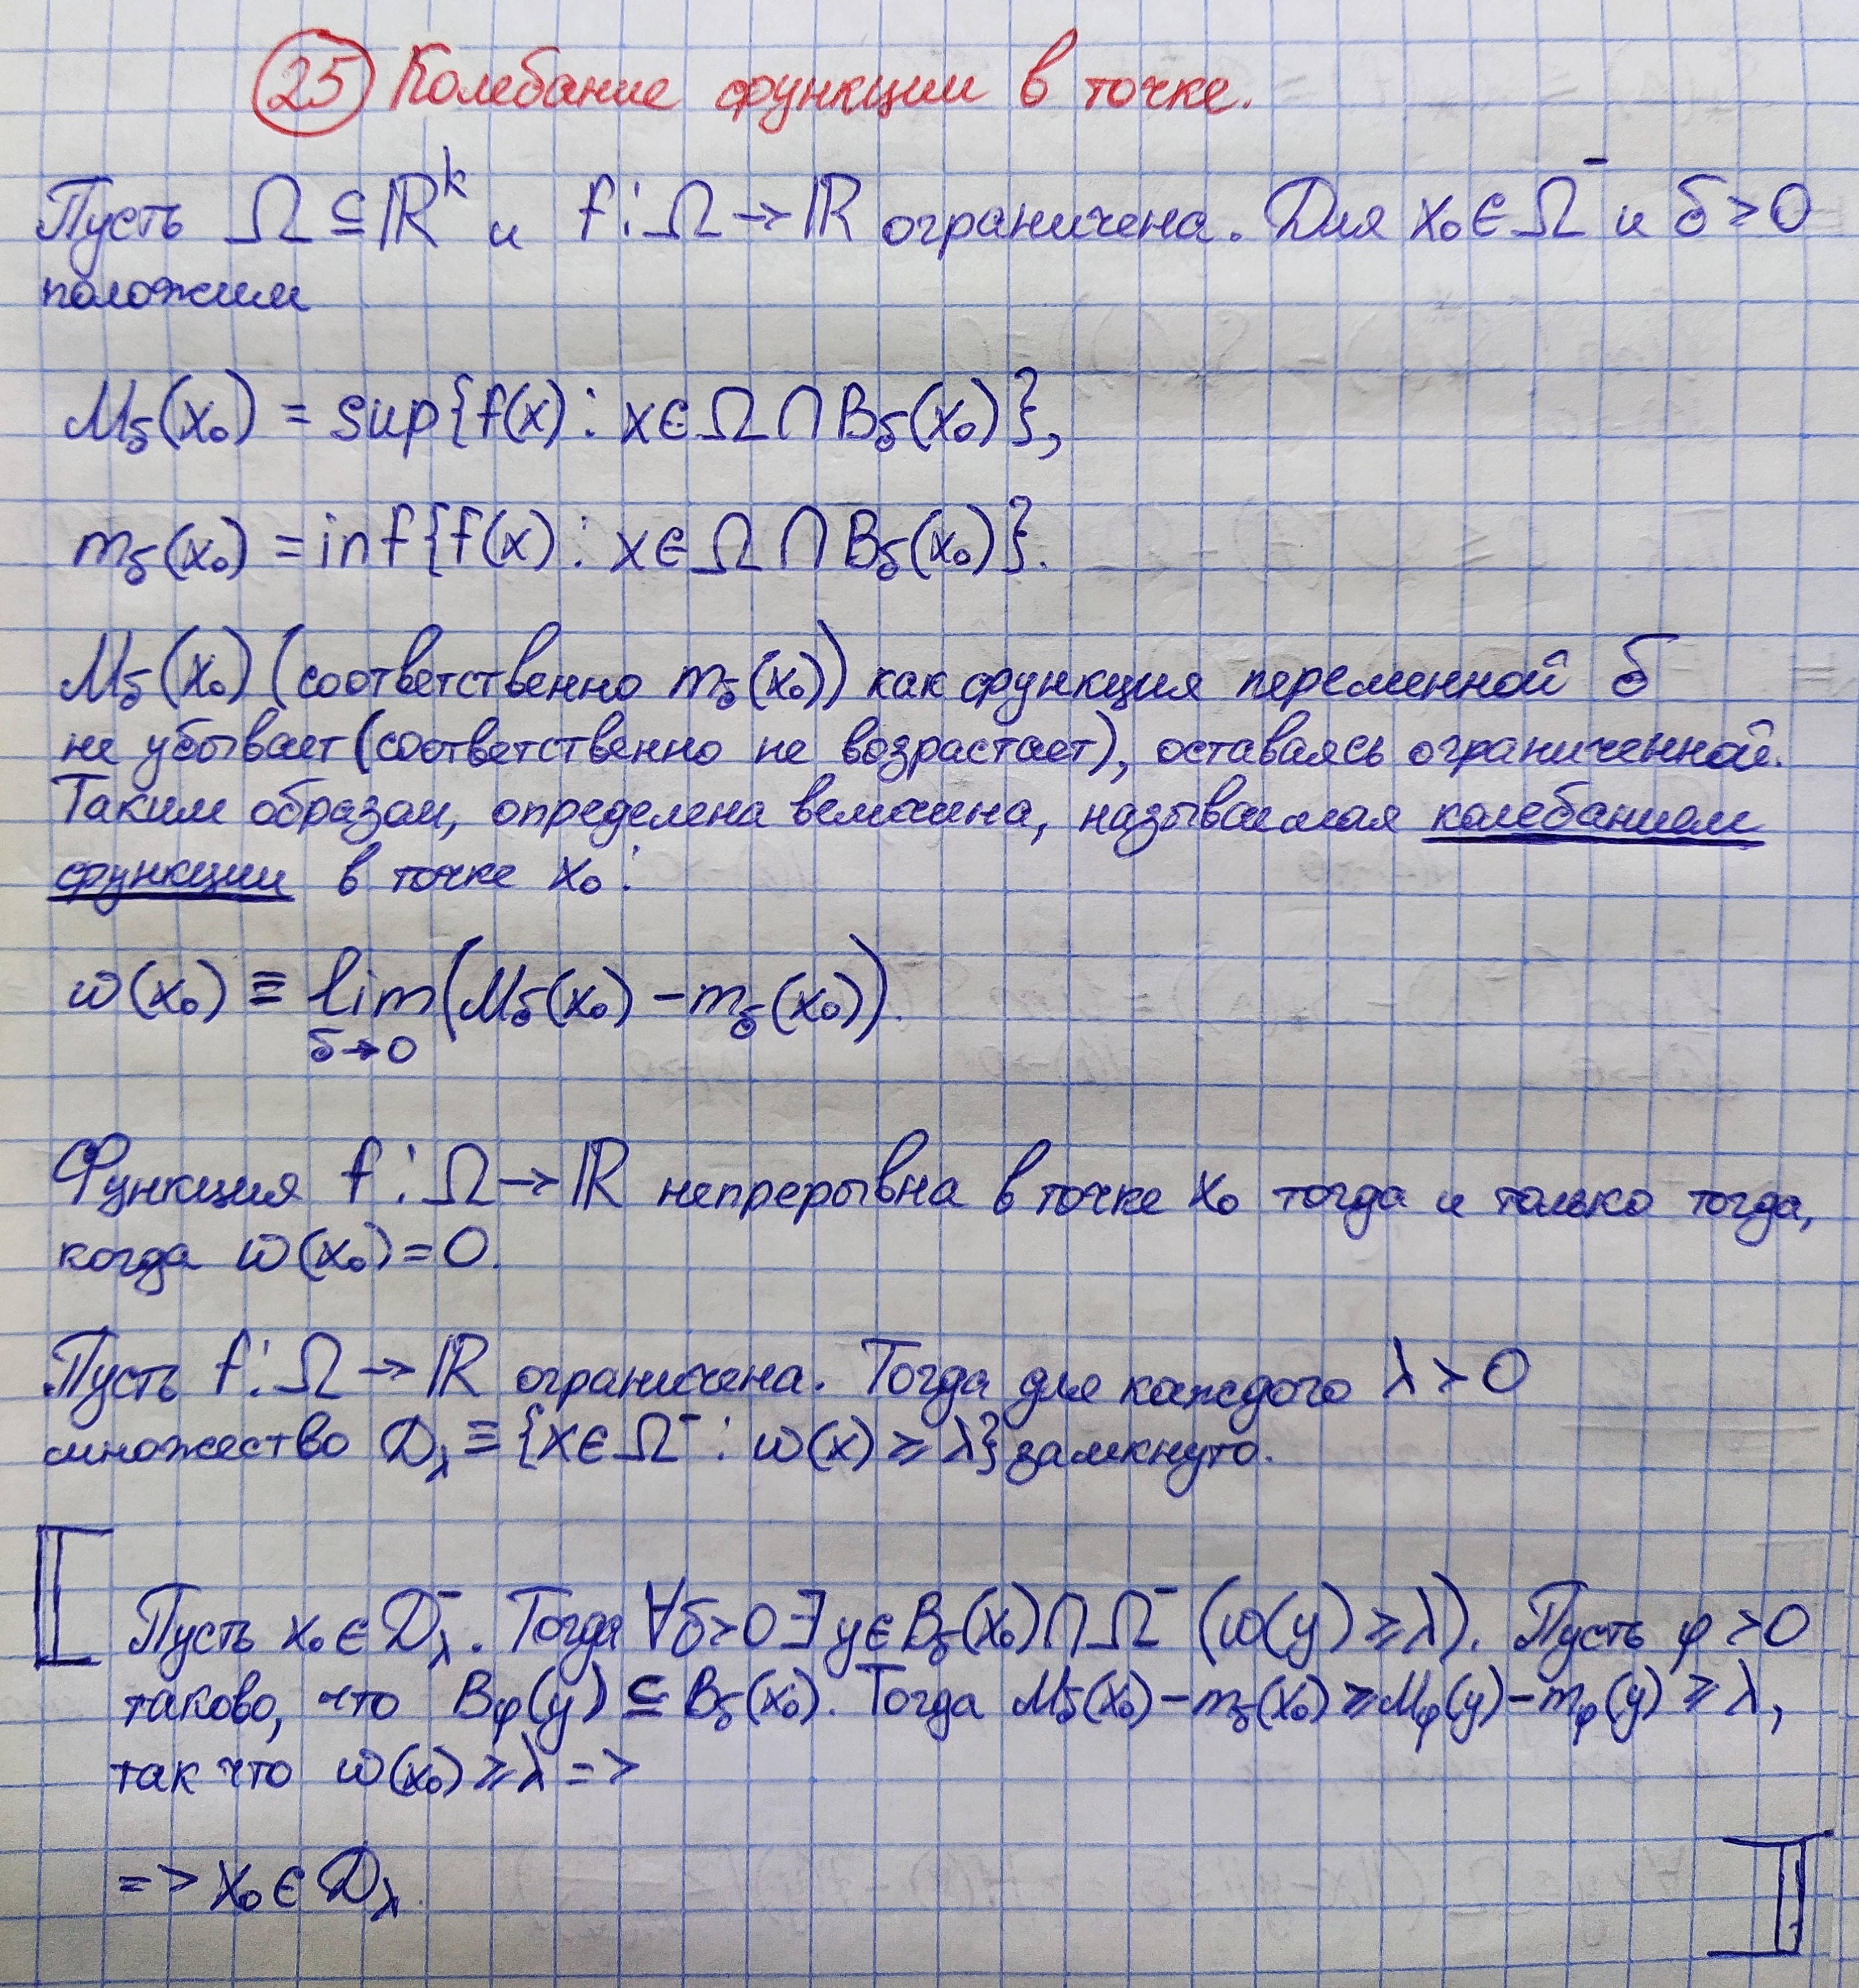 25 Колебание функции в точке.
Пусть Ω ⊆ ℝᵏ и f : Ω → ℝ ограничена. Для x₀ ∈ Ω⁻ и δ > 0
положим
M_δ(x₀) = sup{f(x) : x ∈ Ω ∩ B_δ(x₀)},
m_δ(x₀) = inf{f(x) : x ∈ Ω ∩ B_δ(x₀)}.
M_δ(x₀) (соответственно m_δ(x₀)) как функция переменной δ
не убывает (соответственно не возрастает), оставаясь ограниченной.
Таким образом, определена величина, называемая колебанием
функции в точке x₀:
ω(x₀) ≡ lim (M_δ(x₀) − m_δ(x₀)).
δ→0
Функция f : Ω → ℝ непрерывна в точке x₀ тогда и только тогда,
когда ω(x₀) = 0.
Пусть f : Ω → ℝ ограничена. Тогда для каждого λ > 0
множество D_λ ≡ {x ∈ Ω⁻ : ω(x) ⩾ λ} замкнуто.
Пусть x₀ ∈ D_λ⁻. Тогда ∀δ>0 ∃ y ∈ B_δ(x₀) ∩ Ω⁻ (ω(y) ⩾ λ). Пусть φ > 0
таково, что B_φ(y) ⊆ B_δ(x₀). Тогда M_δ(x₀) − m_δ(x₀) ⩾ M_φ(y) − m_φ(y) ⩾ λ,
так что ω(x₀) ⩾ λ =>
=> x₀ ∈ D_λ.